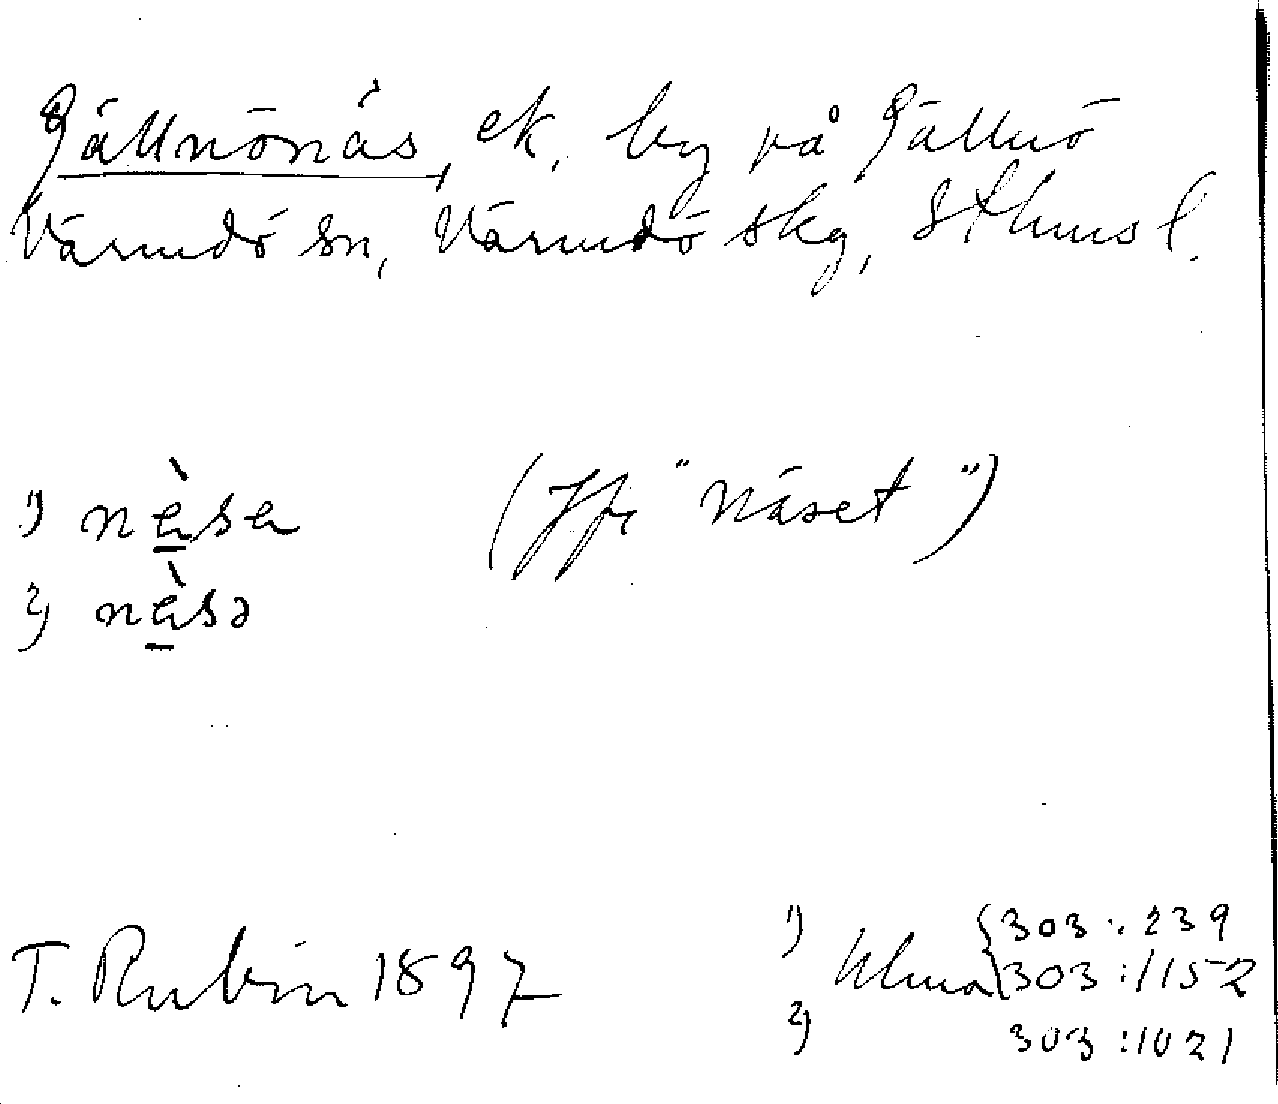 Gällnönäs, ek. by på Gällnö
Värmdö sn, Värmdö skg, Sthms l.
1) näsa (Jfr "Näset")
2) näsə
T. Rubin 1897
1) Ulma {303:239
{303:1152
2) 303:1021